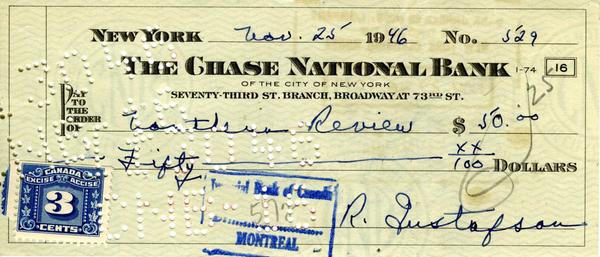 NEW YORK Nov. 25 1946 No. 529
THE CHASE NATIONAL BANK 1-74 16
OF THE CITY OF NEW YORK
SEVENTY-THIRD ST. BRANCH, BROADWAY AT 73RD ST.
PAY
TO THE
ORDER
OF Northern Review $ 50.00
Fifty xx/100 DOLLARS
25
CANADA
EXCISE ACCISE
3
CENTS
Imperial Bank of Canada
MONTREAL
R. Gustafson